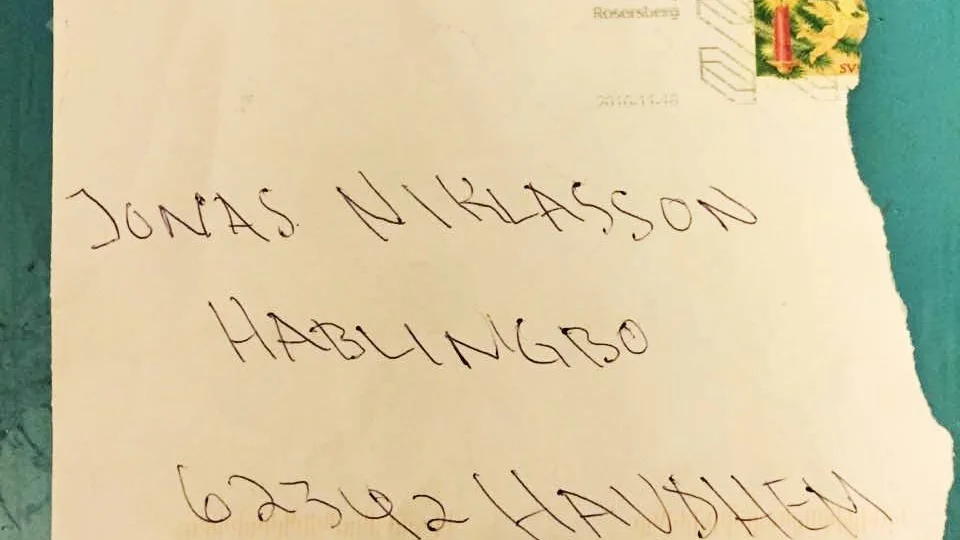 Rosersberg
2016-11-18
SV
JONAS NIKLASSON
HABLINGBO
62342 HAVDHEM